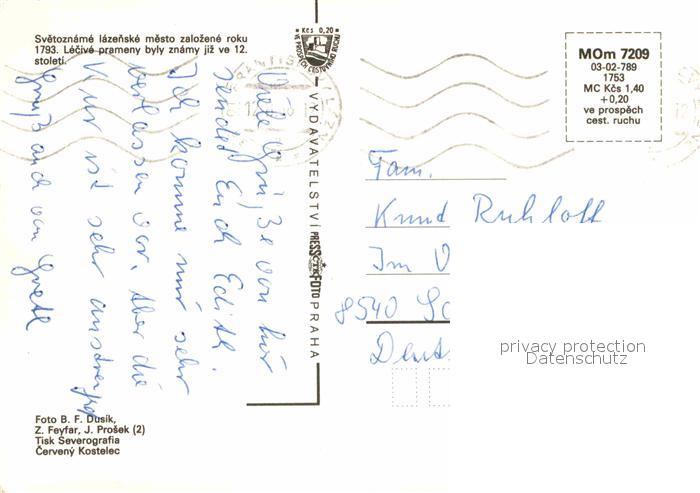 Světoznámé lázeňské město založené roku
1793. Léčivé prameny byly známy již ve 12.
století.
Kčs 0,20
VE PROSPĚCH CESTOVNÍHO RUCHU
MOm 7209
03-02-789
1753
MC Kčs 1,40
+0,20
ve prospěch
cest. ruchu
Viele Grüße von hier
sendet Euch Edith.
Ich komme mir sehr
verlassen vor. Aber die
Kur ist sehr anstrengend
Gruß auch von Gretl
VYDAVATELSTVÍ PRESSFOTO PRAHA
Fam.
Knud
Im V
8540 Sc
Deut
privacy protection
Datenschutz
Foto B. F. Dusík,
Z. Feyfar, J. Prošek (2)
Tisk Severografia
Červený Kostelec